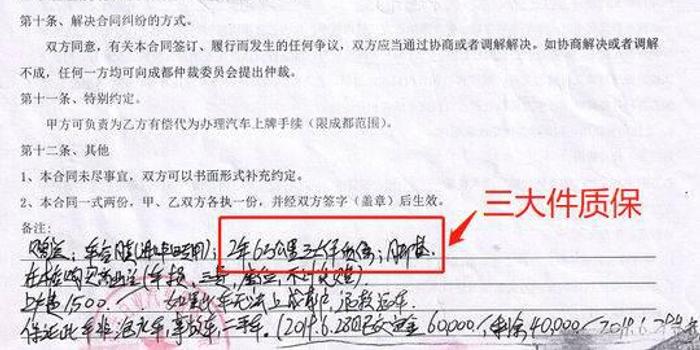 第十条、解决合同纠纷的方式。
双方同意，有关本合同签订、履行而发生的任何争议，双方应当通过协商或者调解解决。如协商解决或者调解
不成，任何一方均可向成都仲裁委员会提出仲裁。
第十一条、特别约定。
甲方可负责为乙方有偿代为办理汽车上牌手续（限成都范围）。
第十二条、其他
1、本合同未尽事宜，双方可以书面形式补充约定。
2、本合同一式两份，甲、乙双方各执一份，并经双方签字（盖章）后生效。
三大件质保
备注:
2年6万公里三大件质保；脚垫.
在店购买商业险(车损，三者，座位，不计免赔)
上牌 1,500 如果此车无法上成都户，退款退车.
保证此车非泡水车，事故车，二手车. (2019.6.28日已交定金 60,000/剩余40,000/ 2019.6.